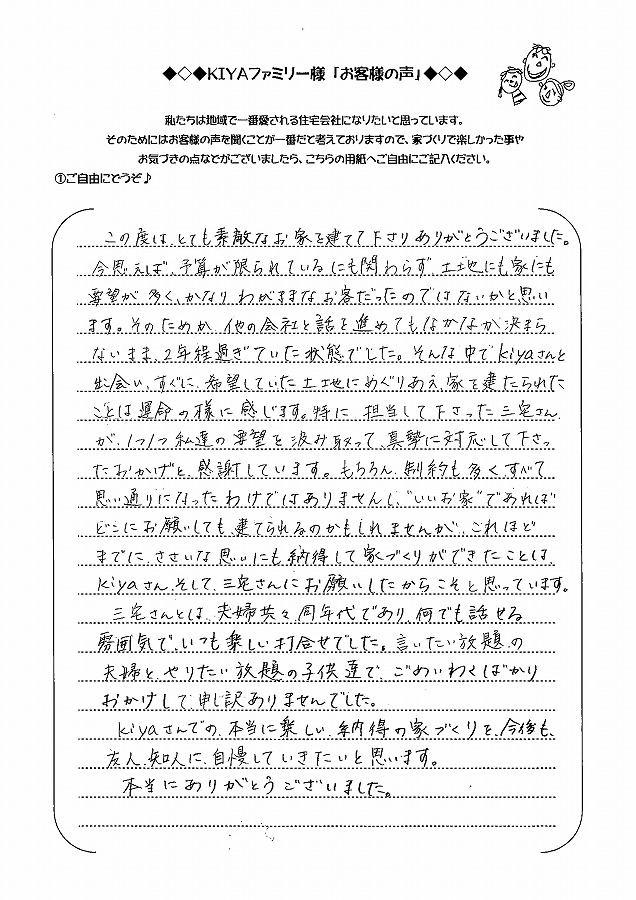 ◆◇◆KIYAファミリー様「お客様の声」◆◇◆
私たちは地域で一番愛される住宅会社になりたいと思っています。
そのためにはお客様の声を聞くことが一番だと考えておりますので、家づくりで楽しかった事や
お気づきの点などがございましたら、こちらの用紙へご自由にご記入ください。
①ご自由にどうぞ♪
この度は、とても素敵なお家を建てて下さりありがとうございました。
今思えば、予算が限られているにも関わらず、土地にも家にも
要望が多く、かなりわがままなお客だったのではないかと思い
ます。そのためか、他の会社と話を進めてもなかなか決まら
ないまま、2年程過ぎていた状態でした。そんな中でkiyaさんと
出会い、すぐに、希望していた土地にめぐりあえ、家を建たられた
ことは運命の様に感じます。特に、担当して下さった三宅さん
が、1つ1つ私達の要望を汲み取って、真摯に対応して下さっ
たおかげと、感謝しています。もちろん、制約も多くすべて
思い通りになったわけではありませんし、"いいお家"であれば
どこにお願いしても、建てられるのかもしれませんが、これほど
までに、ささいな思いにも納得して家づくりができたことは、
kiyaさん、そして、三宅さんにお願いしたからこそと思っています。
三宅さんとは、夫婦共々、同年代であり、何でも話せる
雰囲気で、いつも楽しい打合せでした。言いたい放題の
夫婦と、やりたい放題の子供達で、ごめいわくばかり
おかけして申し訳ありませんでした。
kiyaさんでの、本当に楽しい、納得の家づくりを、今後も、
友人、知人に、自慢していきたいと思います。
本当にありがとうございました。